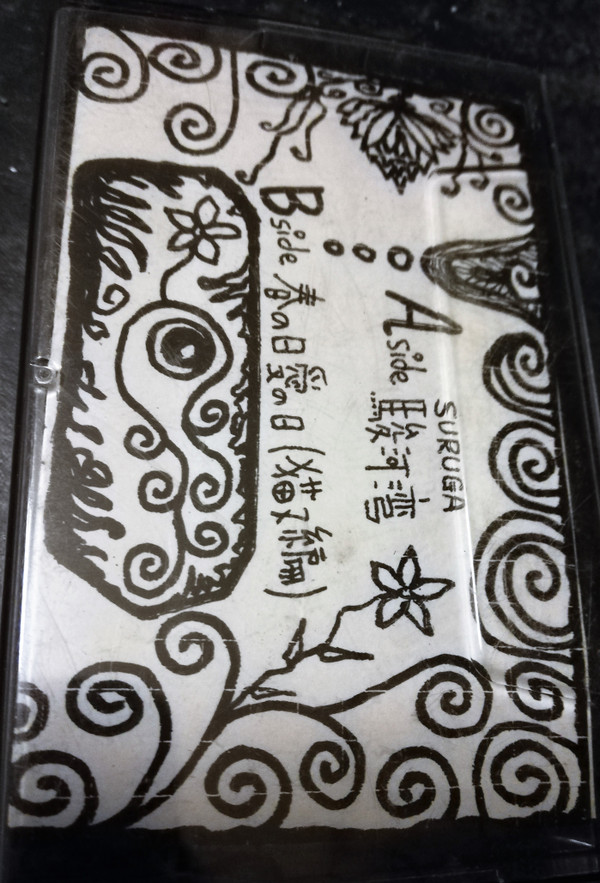 SURUGA
A side 駿河湾
B side 春の日愛の日(猫又編)